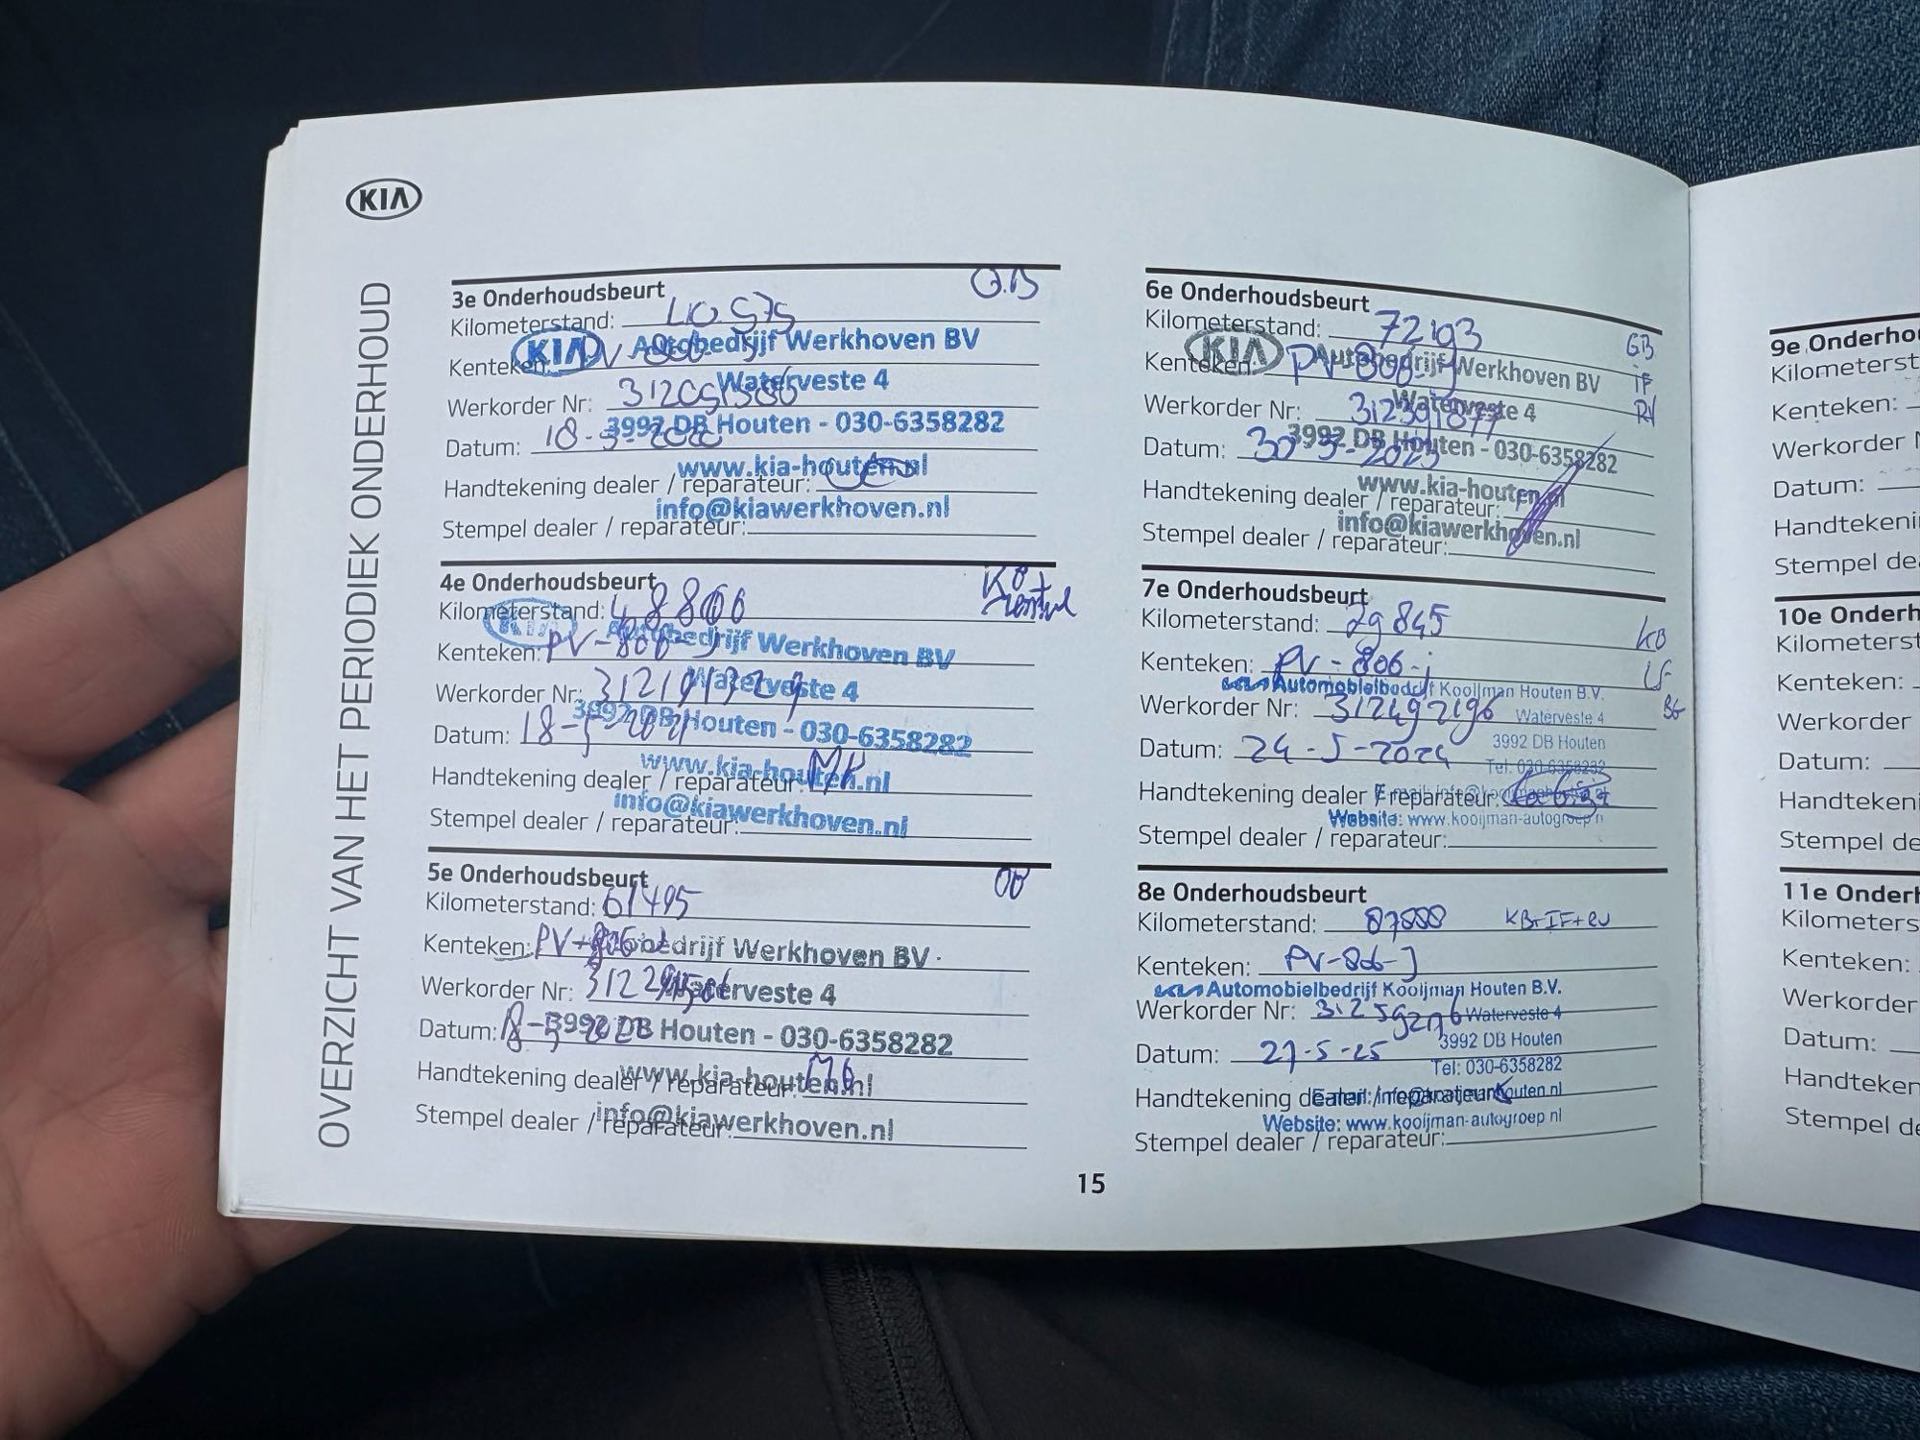 KIA
OVERZICHT VAN HET PERIODIEK ONDERHOUD
3e Onderhoudsbeurt
Kilometerstand: 40575
Kenteken:
KIA Autobedrijf Werkhoven BV
Waterveste 4
Werkorder Nr:
3992 DB Houten - 030-6358282
Datum: 18-5-2020
www.kia-houten.nl
Handtekening dealer / reparateur:
info@kiawerkhoven.nl
Stempel dealer / reparateur:
4e Onderhoudsbeurt
Kilometerstand: 48866
KIA Autobedrijf Werkhoven BV
Kenteken: PV-806-J
Waterveste 4
Werkorder Nr:
3992 DB Houten - 030-6358282
Datum: 18-5-2021
www.kia-houten.nl
Handtekening dealer / reparateur:
info@kiawerkhoven.nl
Stempel dealer / reparateur:
5e Onderhoudsbeurt
Kilometerstand: 61495
Kenteken: PV-806-J
Autobedrijf Werkhoven BV
Werkorder Nr:
Waterveste 4
Datum:
3992 DB Houten - 030-6358282
Handtekening dealer / reparateur:
www.kia-houten.nl
Stempel dealer / reparateur:
info@kiawerkhoven.nl
6e Onderhoudsbeurt
Kilometerstand: 72193
GB
Kenteken: PV-806-J
KIA Autobedrijf Werkhoven BV
Werkorder Nr: 312391877
Waterveste 4
Datum: 30-5-2023
3992 DB Houten - 030-6358282
www.kia-houten.nl
Handtekening dealer / reparateur:
info@kiawerkhoven.nl
Stempel dealer / reparateur:
7e Onderhoudsbeurt
Kilometerstand: 79845
Kenteken: PV-806-j
KIA Automobielbedrijf Kooijman Houten B.V.
Werkorder Nr: 312492196
Waterveste 4
3992 DB Houten
Datum: 24-5-2024
Tel: 030-6358282
Handtekening dealer / reparateur:
Website: www.kooijman-autogroep.nl
Stempel dealer / reparateur:
8e Onderhoudsbeurt
Kilometerstand: 87888 KB+IF+RV
Kenteken: PV-806-J
KIA Automobielbedrijf Kooijman Houten B.V.
Werkorder Nr: 312592276
Waterveste 4
3992 DB Houten
Datum: 27-5-25
Tel: 030-6358282
Handtekening dealer / reparateur:
Website: www.kooijman-autogroep.nl
Stempel dealer / reparateur:
15
9e Onderho
Kilometerst
Kenteken:
Werkorder N
Datum:
Handtekeni
Stempel de
10e Onderh
Kilometerst
Kenteken:
Werkorder
Datum:
Handteken
Stempel de
11e Onderh
Kilometers
Kenteken:
Werkorder
Datum:
Handteken
Stempel de